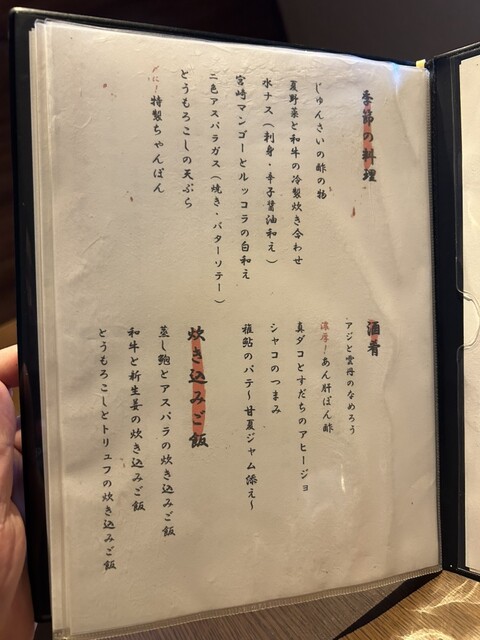 季節の料理
じゅんさいの酢の物
夏野菜と和牛の冷製炊き合わせ
水ナス(刺身・辛子醤油和え)
宮崎マンゴーとルッコラの白和え
二色アスパラガス(焼き・バターソテー)
とうもろこしの天ぷら
特製ちゃんぽん
酒肴
アジと雲丹のなめろう
濃厚!あん肝ぽん酢
真ダコとすだちのアヒージョ
シャコのつまみ
稚鮎のパテ～甘夏ジャム添え～
炊き込みご飯
蒸し鮑とアスパラの炊き込みご飯
和牛と新生姜の炊き込みご飯
とうもろこしとトリュフの炊き込みご飯